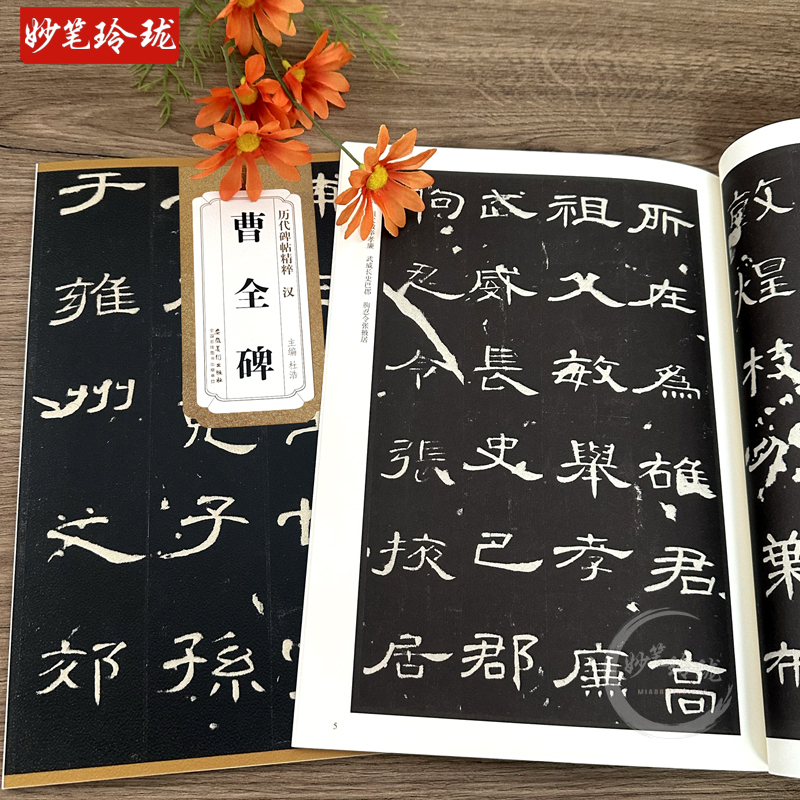 妙笔玲珑
历代碑帖精粹 汉
曹全碑
主编 杜浩
安徽美术出版社
子孫
于雍州文郊
敦煌枝分葉布
所在為雄君高
祖父敏舉孝廉
武威長史巴郡
朐忍令張掖居
孝廉 武威长史巴郡 朐忍令张掖居
5
妙笔玲珑